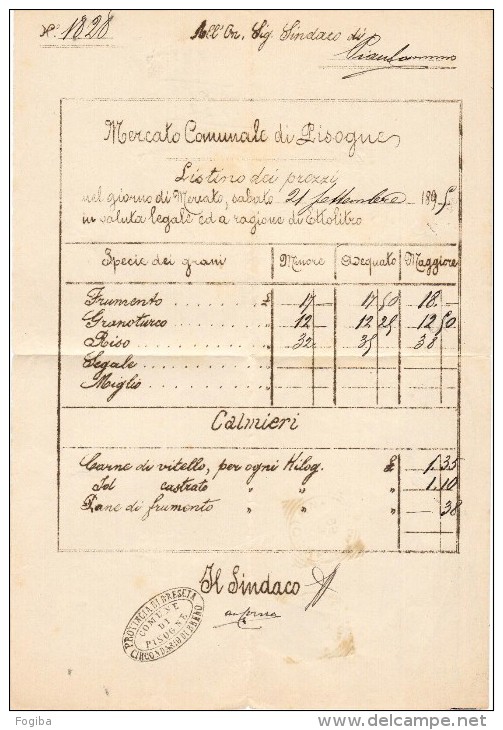 N.° 1828
All'On. Sig. Sindaco di
Piancamuno
Mercato Comunale di Pisogne
Listino dei prezzi
nel giorno di Mercato, sabato 21 settembre 1895
in valuta legale ed a ragione di Ettolitro
Specie dei grani Minore Adequato Maggiore
Frumento £ 17 17 50 18
Granoturco „ 12 12 25 12 50
Riso „ 32 35 38
Segale „
Miglio „
Calmieri
Carne di vitello, per ogni Kilog. £ 1.35
Id castrato „ „ „ 1.10
Pane di frumento „ „ „ 38
Il Sindaco
PROVINCIA DI BRESCIA
COMUNE
DI
PISOGNE
CIRCONDARIO DI BRENO
Fogiba
delcampe.net